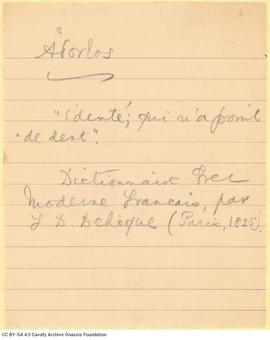 "édenté; qui n'a point
de dent".
Dictionnaire Grec
Moderne Francais, par
F. D. Dehèque (Paris, 1825).
CC BY-SA 4.0 Cavafy Archive Onassis Foundation